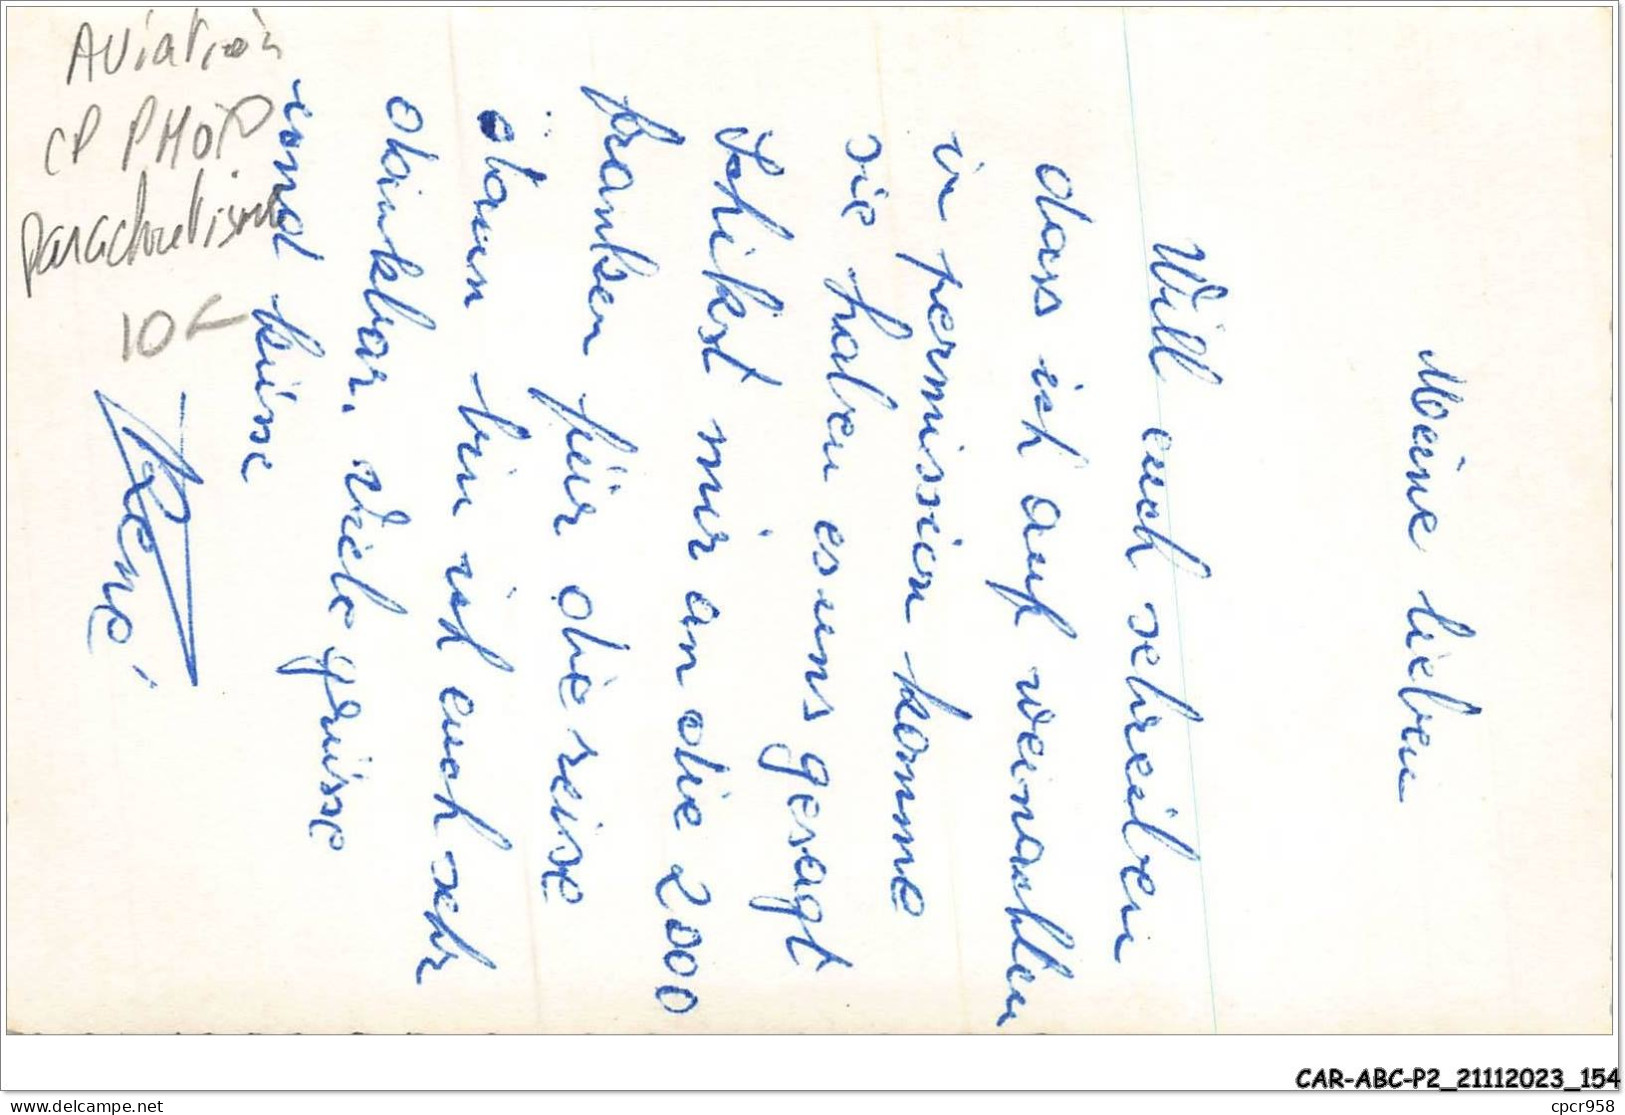 Meine lieben
Will euch schreiben
dass ich auf weinachten
in permission komme
sie haben es uns gesagt
Schikst mir an die 2000
franken für die reise
dann bin ich euch sehr
dankbar. viele grüsse
und küsse
René
Aviation
CP PHOTO
parachutisme
10€
CAR-ABC-P2_21112023_154
delcampe.net
cpcr958